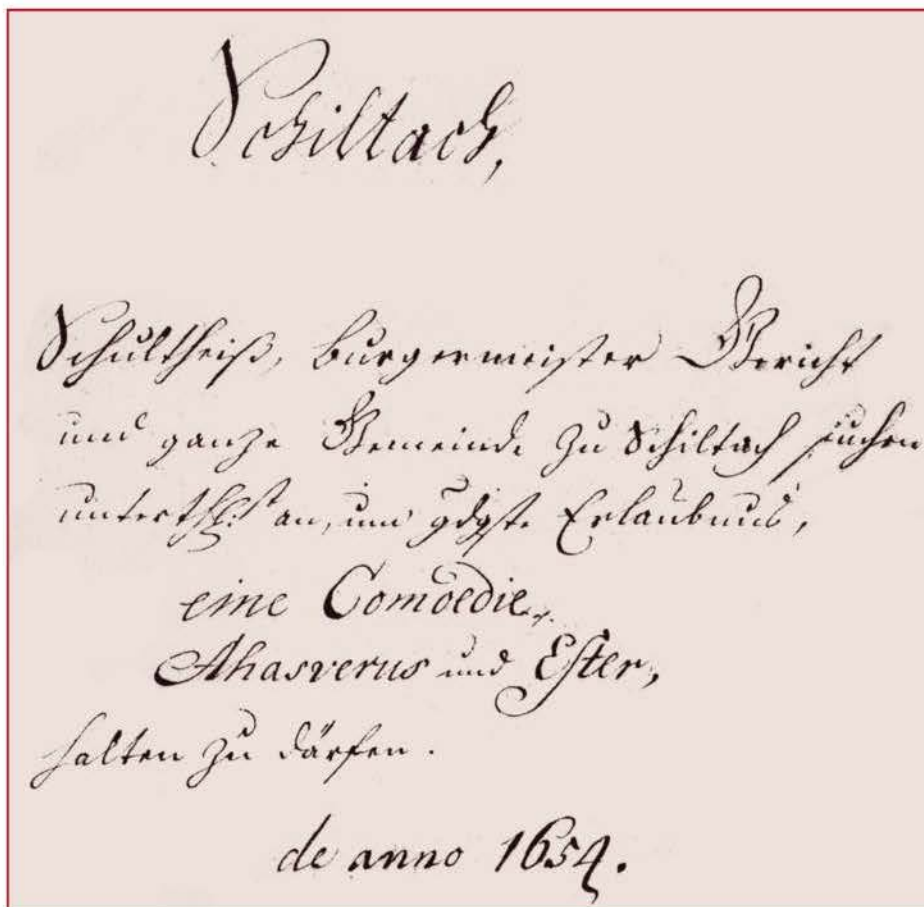 Schiltach,
Schultheiß, Burgermeister Gericht
und ganze Gemeinde zu Schiltach suchen
unterthgst an, um gdgste Erlaubnus,
eine Comoedie
Ahasverus und Ester,
halten zu därfen.
de anno 1654.